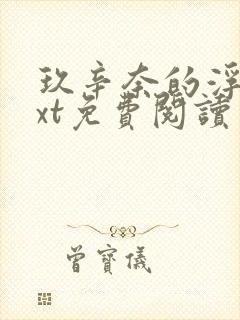 玖辛奈的浮
xt免費閱讀
曾寶儀